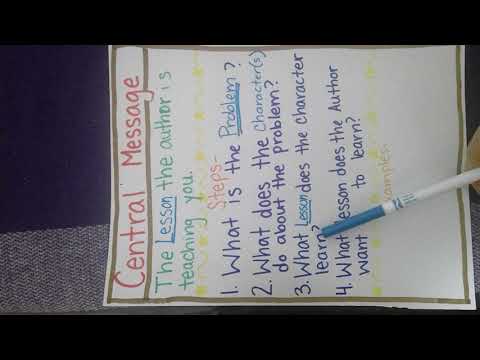 Central Message
The Lesson the author is
teaching you.
Steps-
1. What is the Problem?
2. What does the Character(s)
do about the problem?
3. What Lesson does the character
learn?
4. What Lesson does the Author
want to learn?